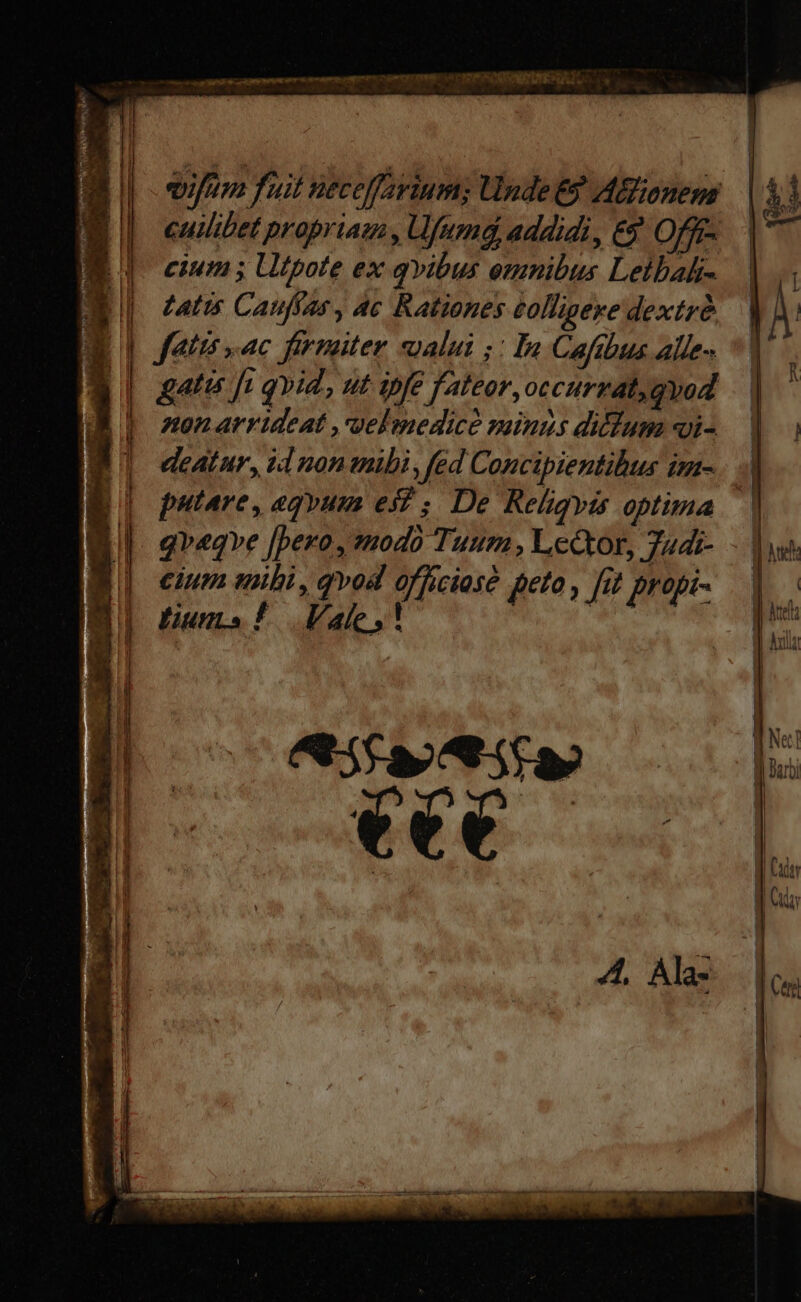 viſum fuit neceſſarium; Unde & Actionem
cuilibet propriam, Uſumq; addidi, & Offi-
cium; Utpote ex qvibus omnibus Lethali-
tatis Cauſſas, ac Rationes colligere dextrè
ſatis, ac firmiter valui; In Caſibus alle-
gatis ſi qvid, ut ipſe fateor, occurrat, qvod
non arrideat, vel medicè minùs dictum vi-
deatur, id non mihi, ſed Concipientibus im-
putare, æqvum eſt; De Reliqvis optima
qvæqve ſpero, modò Tuum, Lector, Judi-
cium mihi, qvod officiosè peto, ſit propi-
tium! Vale!
A. Ala-
Nec
Barbi